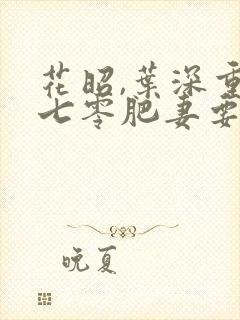 花昭,葉深重
七零肥妻要
晚夏